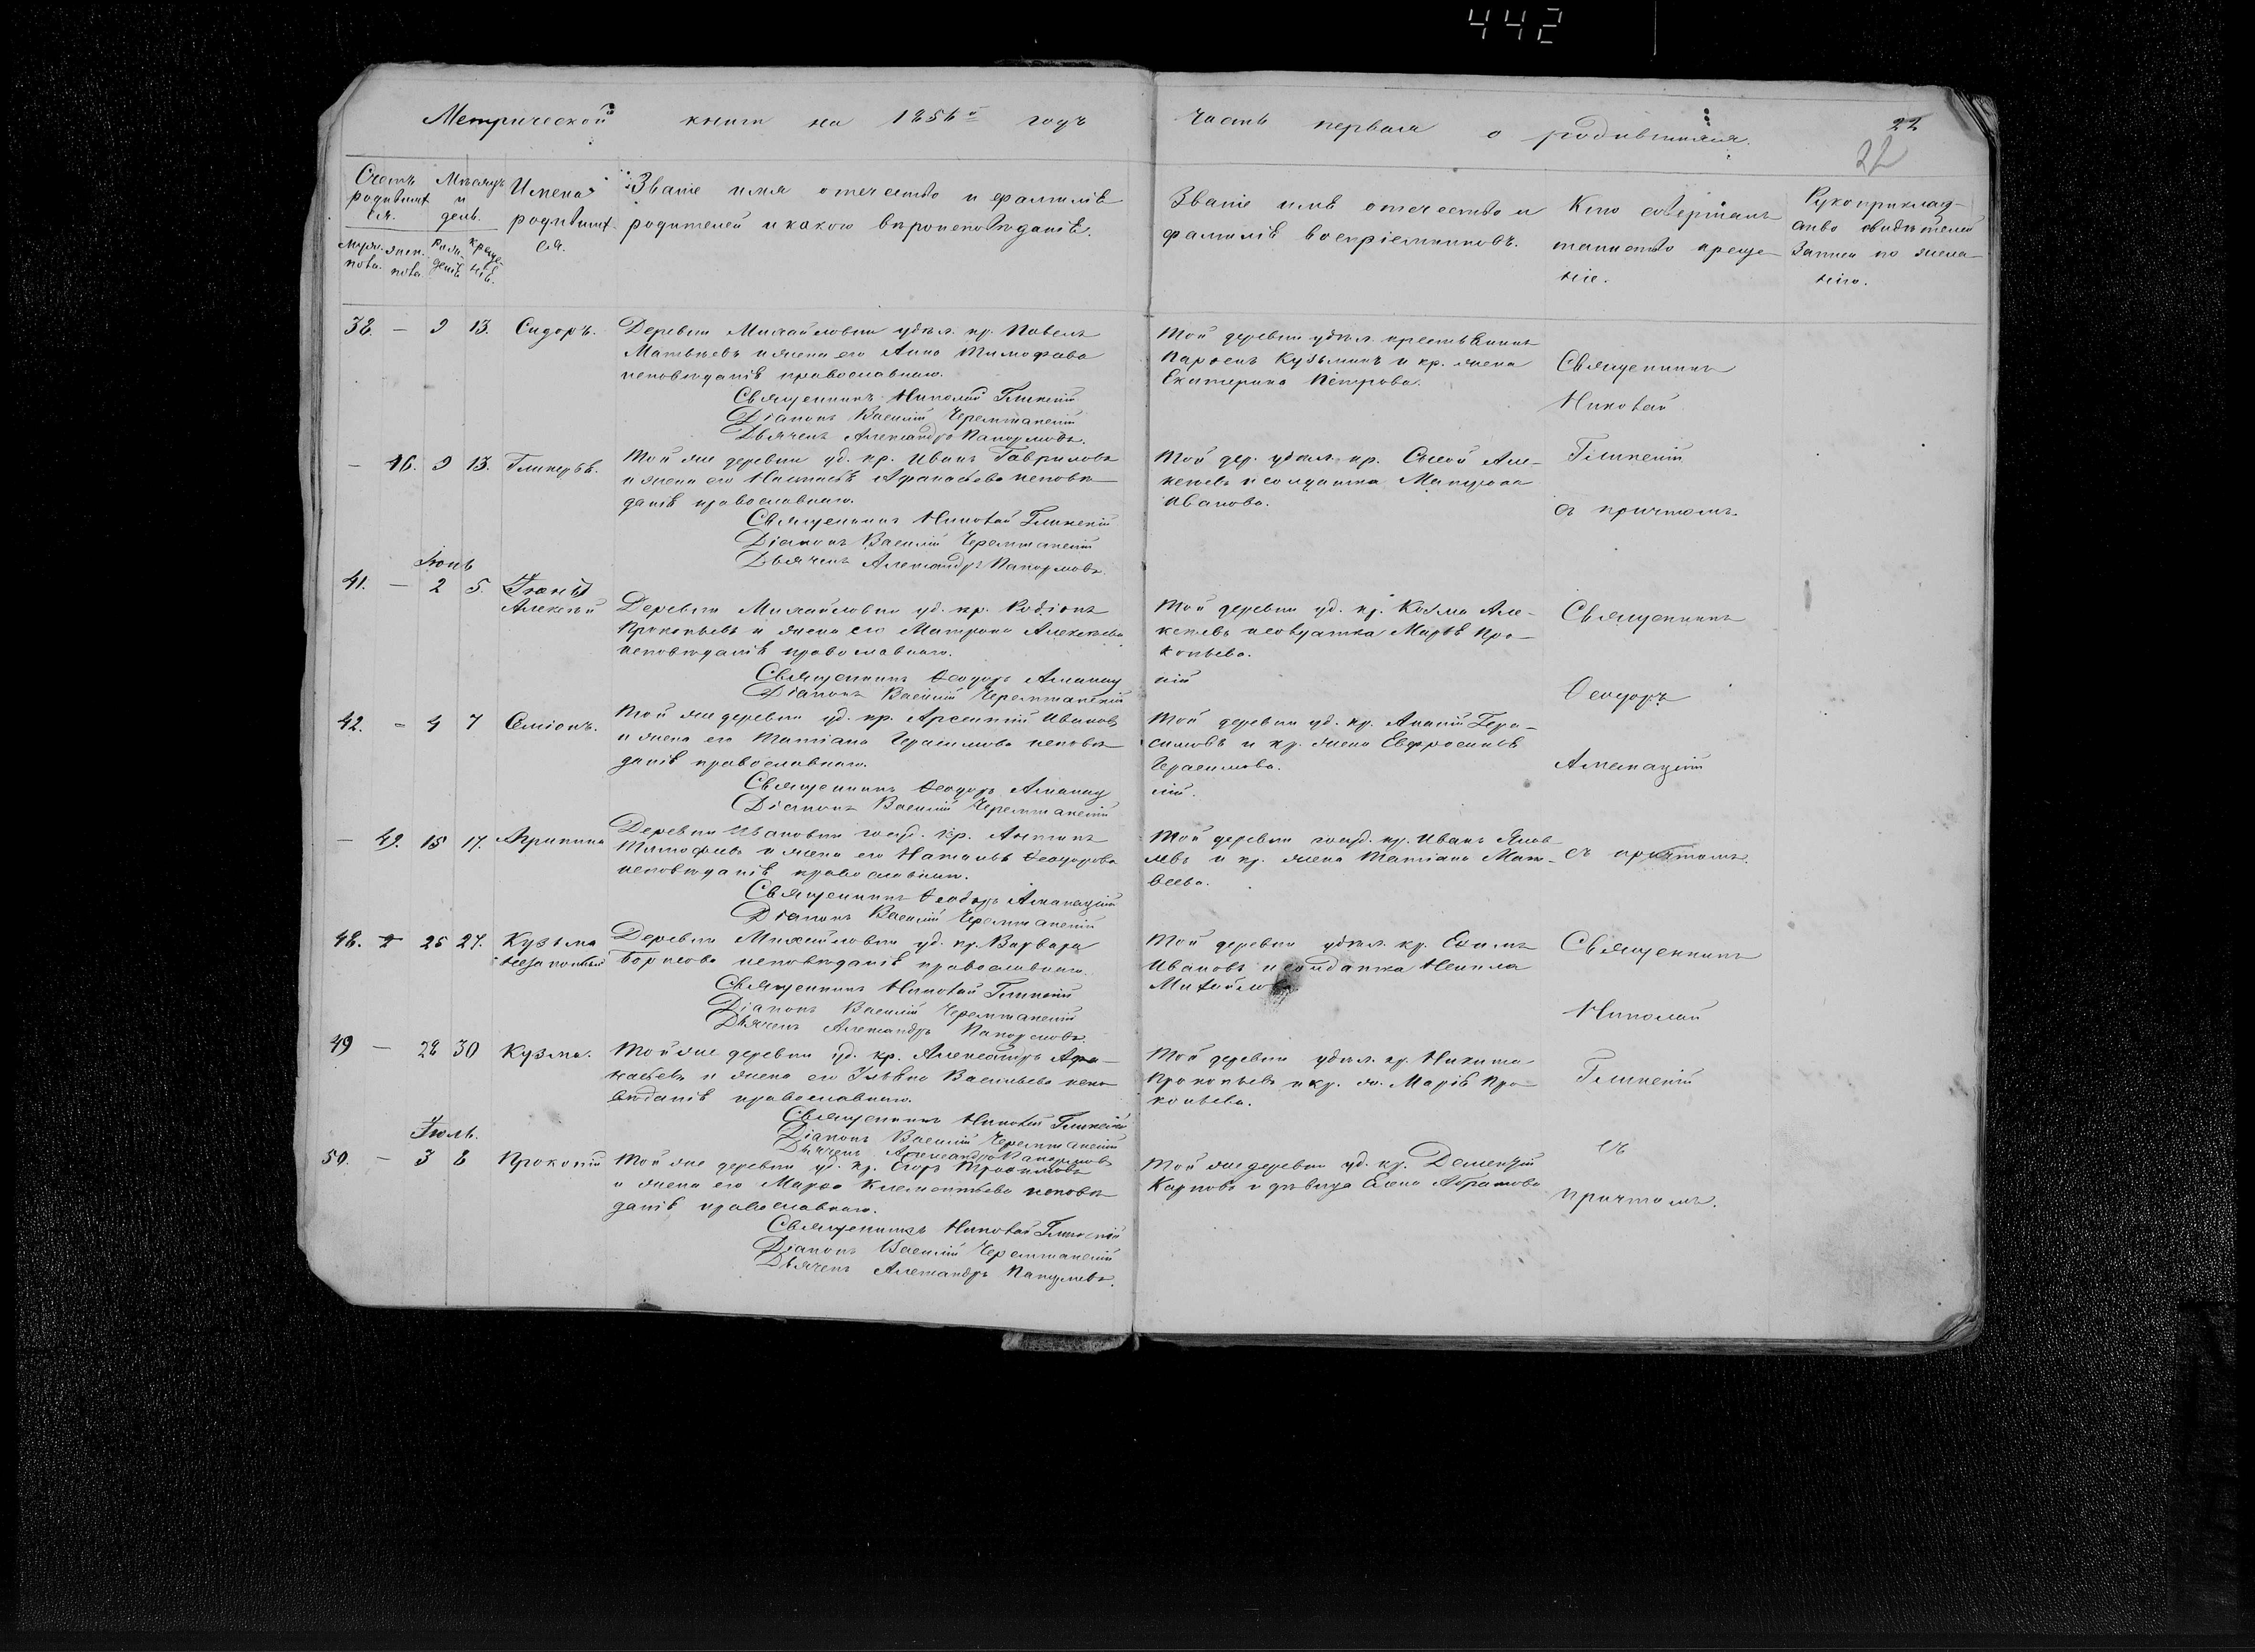 442
Метрической книги на 1856й годъ
часть первая о родившихся.
22
22
Счетъ родившихся.
Мѣсяцъ и день.
Имена родившихся.
Званіе имя отечество и фамилія
родителей и какого вѣроисповѣданія.
Званіе имя отечество и
фамилія воспріемниковъ.
Кто совершалъ
таинство креще-
нія.
Рукоприклад-
ство свидѣтелей
записи по жела-
нію.
38. — 9 13. Сидоръ.
Деревни Михайловки удѣл. кр. Павелъ
Матвѣевъ и жена его Анна Тимофеева
исповѣданія православнаго.
Священникъ Николай Глинскій
Діаконъ Василій Черемшанскій
Дьячекъ Александръ
Той деревни удѣл. крестьянинъ
Парѳенъ Кузьминъ и кр. жена
Екатерина Петрова.
Священникъ
Николай
Глинскій
съ причтомъ.
— 46. 9 13. Гликерья.
Той же деревни уд. кр. Иванъ Гавриловъ
и жена его Настасья Афанасьева исповѣ
данія православнаго.
Священникъ Николай Глинскій
Діаконъ Василій Черемшанскій
Дьячекъ Александръ
Той дер. удѣл. кр. Сысой Але-
ксѣевъ и солдатка
Иванова.
Іюнь
41. — 2 5.
Алексѣй
Деревни Михайловки уд. кр. Родіонъ
Прокопьевъ и жена его Матрона Алексѣева
исповѣданія православнаго.
Священникъ Ѳеодоръ Алмазиц
кій
Діаконъ Василій Черемшанскій
Той деревни уд. кр. Козма Але-
ксѣевъ и солдатка Марья Про-
копьева.
Священникъ
Ѳеодоръ
съ причтомъ.
42. — 4 7 Семіонъ.
Той же деревни уд. кр. Арсентій Ивановъ
и жена его Татіана Герасимова исповѣ
данія православнаго.
Священникъ Ѳеодоръ
Діаконъ Василій Черемшанскій
Той деревни уд. кр. Ананій Гера-
симовъ и кр. жена Евфросинья
Герасимова.
— 49. 15 17. Агрипина
Деревни Ивановки госуд. кр. Антонъ
Тимофеевъ и жена его Наталья Ѳеодорова
исповѣданія православнаго.
Священникъ Ѳеодоръ
Діаконъ Василій Черемшанскій
Той деревни госуд. кр. Иванъ Яков
левъ и кр. жена Татіана Мат-
веева.
48. 25 27. Кузьма
незаконный
Деревни Михайловки уд. кр. Варвара
Борисова исповѣданія православнаго.
Священникъ Николай Глинскій
Діаконъ Василій Черемшанскій
Дьячекъ Александръ
Той деревни удѣл. кр. Екимъ
Ивановъ и солдатка Ненила
Священникъ
Николай
Глинскій
съ
причтомъ.
49 — 28 30 Кузма.
Той же деревни уд. кр. Александръ Афа-
насьевъ и жена его Ульяна Васильева испо
вѣданія православнаго.
Священникъ Николай Глинскій
Діаконъ Василій Черемшанскій
Дьячекъ Александръ
Той деревни удѣл. кр. Никита
Прокопьевъ и кр. ж. Марія Про-
копьева.
Іюль.
50. — 3 8 Прокопій
Той же деревни уд. кр. Егоръ Трофимовъ
и жена его Марѳа Климентьева исповѣ
данія православнаго.
Священникъ Николай Глинскій
Діаконъ Василій Черемшанскій
Дьячекъ Александръ
Той же деревни уд. кр. Дементій
Карповъ и дѣвица Елена Абрамова